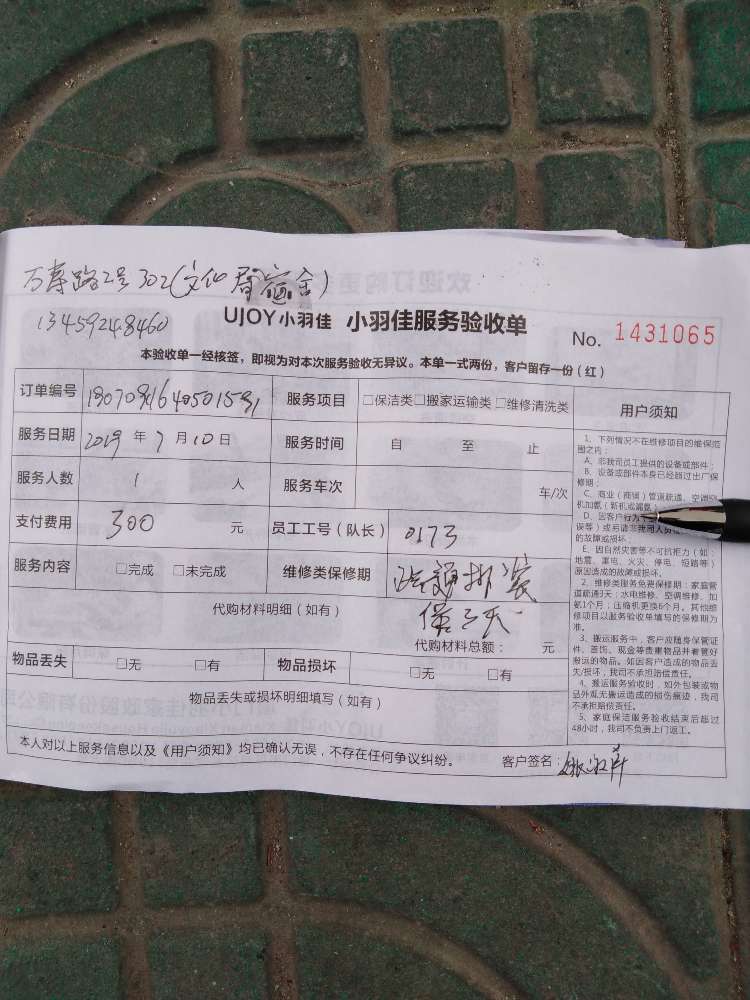 万寿路2号302(文化局宿舍)
13459248460
UJOY小羽佳 小羽佳服务验收单 No. 1431065
本验收单一经核签，即视为对本次服务验收无异议。本单一式两份，客户留存一份（红）
订单编号 服务项目 □保洁类□搬家运输类□维修清洗类
服务日期 2019 年 7 月 10 日 服务时间 自 至 止
服务人数 1 人 服务车次 车/次
支付费用 300 元 员工工号（队长） 0173
服务内容 □完成 □未完成 维修类保修期
保三天
代购材料明细（如有）
代购材料总额： 元
物品丢失 □无 □有 物品损坏 □无 □有
物品丢失或损坏明细填写（如有）
本人对以上服务信息以及《用户须知》均已确认无误，不存在任何争议纠纷。 客户签名：
用户须知
1、下列情况不在维修项目的维保范
围之内：
A、非我司员工提供的设备或部件；
B、设备或部件本身已经超过出厂保
修期；
C、商业（商铺）管道疏通、空调
机加氨（新机或漏氨）
D、因客户行为
误等）或司人员
的故障或损坏。
E、因自然灾害等不可抗拒力（如：
地震、雷电、火灾、停电、短路等）
原因造成的故障或损坏。
2、维修类服务免费保修期：家庭管
道疏通3天；水电维修、空调维修、加
氨1个月；压缩机更换6个月。其他维
修项目以服务验收单填写的保修期为
准。
3、搬运服务中，客户应随身保管证
件、首饰、现金等贵重物品并看管好
搬运的物品。如因客户造成的物品丢
失/损坏，我司不承担赔偿责任。
4、搬运服务验收时，如外包装或物
品外观无搬运造成的损伤痕迹，我司
不承担赔偿责任。
5、家庭保洁服务验收结束后超过
48小时，我司不负责上门返工。